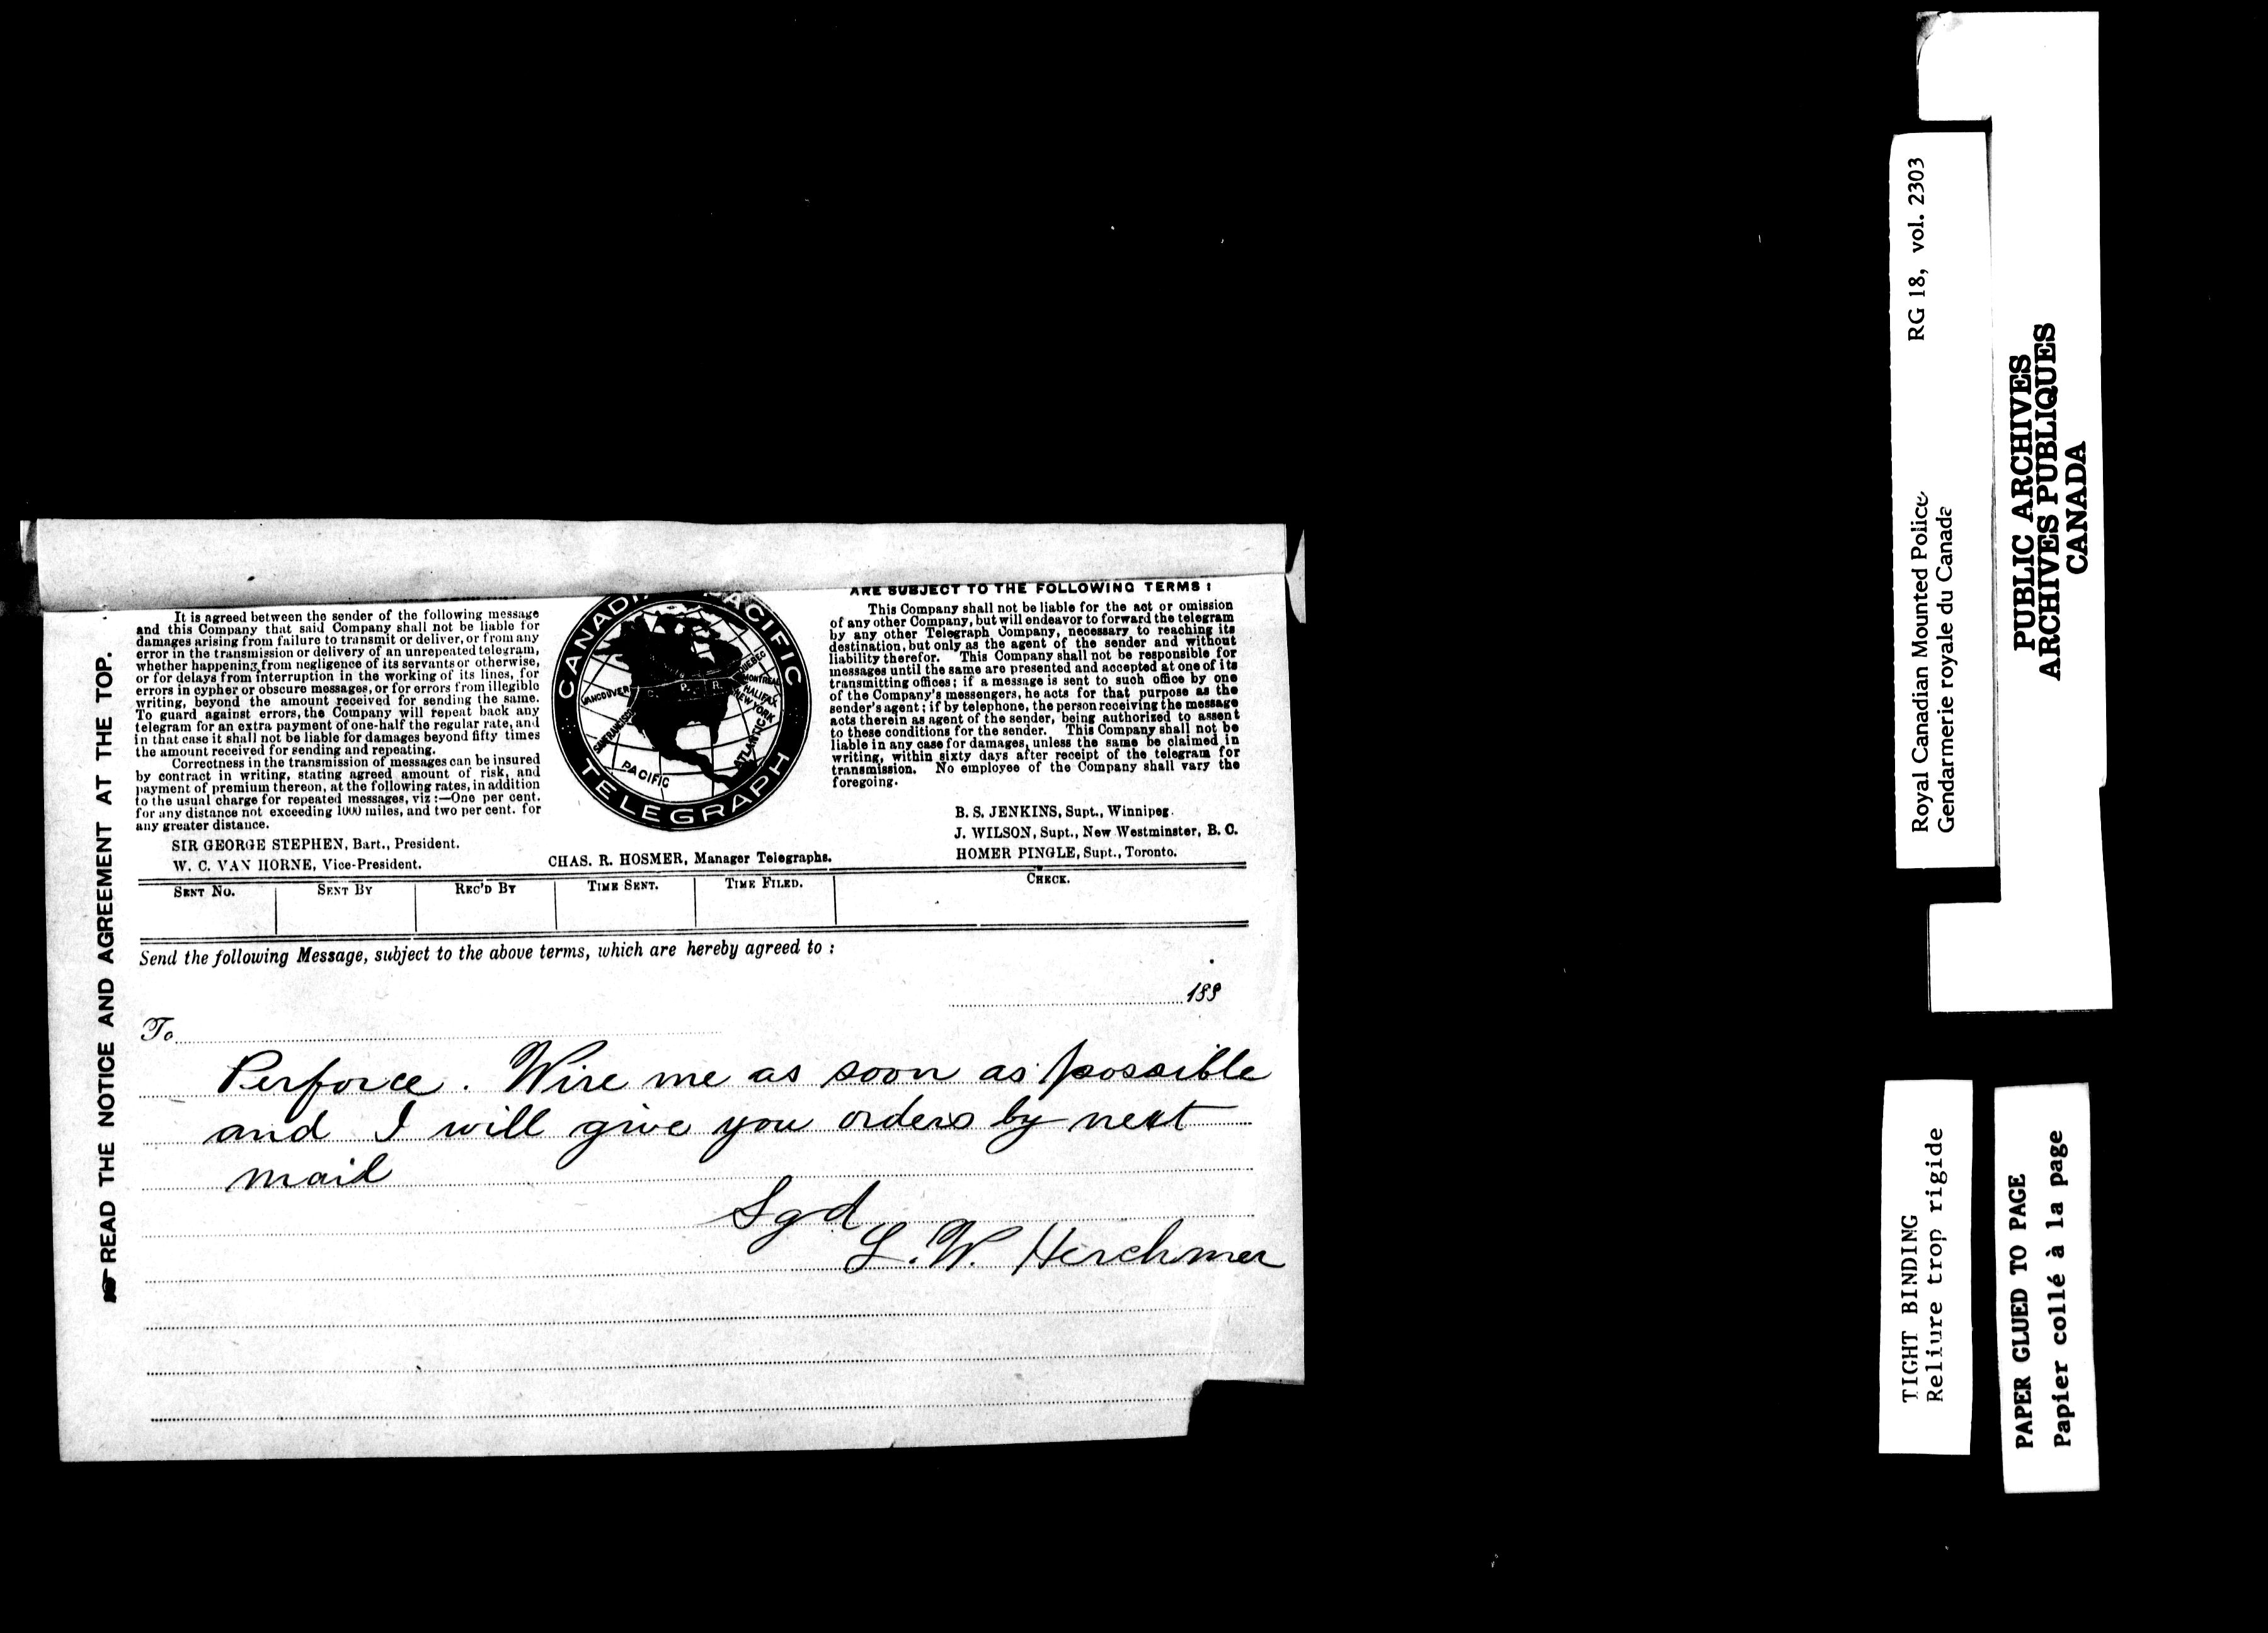 READ THE NOTICE AND AGREEMENT AT THE TOP.
It is agreed between the sender of the following message
and this Company that said Company shall not be liable for
damages arising from failure to transmit or deliver, or from any
error in the transmission or delivery of an unrepeated telegram,
whether happening from negligence of its servants or otherwise,
or for delays from interruption in the working of its lines, for
errors in cypher or obscure messages, or for errors from illegible
writing, beyond the amount received for sending the same.
To guard against errors, the Company will repeat back any
telegram for an extra payment of one-half the regular rate, and
in that case it shall not be liable for damages beyond fifty times
the amount received for sending and repeating.
Correctness in the transmission of messages can be insured
by contract in writing, stating agreed amount of risk, and
payment of premium thereon, at the following rates, in addition
to the usual charge for repeated messages, viz:—One per cent.
for any distance not exceeding 1000 miles, and two per cent. for
any greater distance.
SIR GEORGE STEPHEN, Bart., President.
W. C. VAN HORNE, Vice-President.
PACIFIC
TELEGRAPH
VANCOUVER
C. P. R.
QUEBEC
MONTREAL
HALIFAX
NEW YORK
ATLANTIC
PACIFIC
CHAS. R. HOSMER, Manager Telegraphs.
ARE SUBJECT TO THE FOLLOWING TERMS:
This Company shall not be liable for the act or omission
of any other Company, but will endeavor to forward the telegram
by any other Telegraph Company, necessary to reaching its
destination, but only as the agent of the sender and without
liability therefor. This Company shall not be responsible for
messages until the same are presented and accepted at one of its
transmitting offices; if a message is sent to such office by one
of the Company's messengers, he acts for that purpose as the
sender's agent; if by telephone, the person receiving the message
acts therein as agent of the sender, being authorized to assent
to these conditions for the sender. This Company shall not be
liable in any case for damages, unless the same be claimed in
writing, within sixty days after receipt of the telegram for
transmission. No employee of the Company shall vary the
foregoing.
B. S. JENKINS, Supt., Winnipeg.
J. WILSON, Supt., New Westminster, B. C.
HOMER PINGLE, Supt., Toronto.
SENT NO. SENT BY REC'D BY TIME SENT. TIME FILED. CHECK.
Send the following Message, subject to the above terms, which are hereby agreed to:
188
To
Perforce. Wire me as soon as possible
and I will give you orders by next
mail
Sgd
L. W. Herchmer
Royal Canadian Mounted Police RG 18, vol. 2303
Gendarmerie royale du Canada
PUBLIC ARCHIVES
ARCHIVES PUBLIQUES
CANADA
TIGHT BINDING
Reliure trop rigide
PAPER GLUED TO PAGE
Papier collé à la page